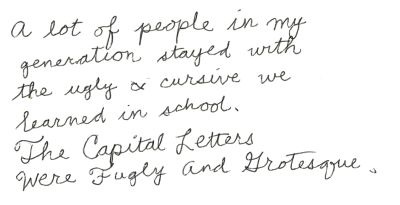 a lot of people in my
generation stayed with
the ugly & cursive we
learned in school.
The Capital Letters
Were Fugly and Grotesque.